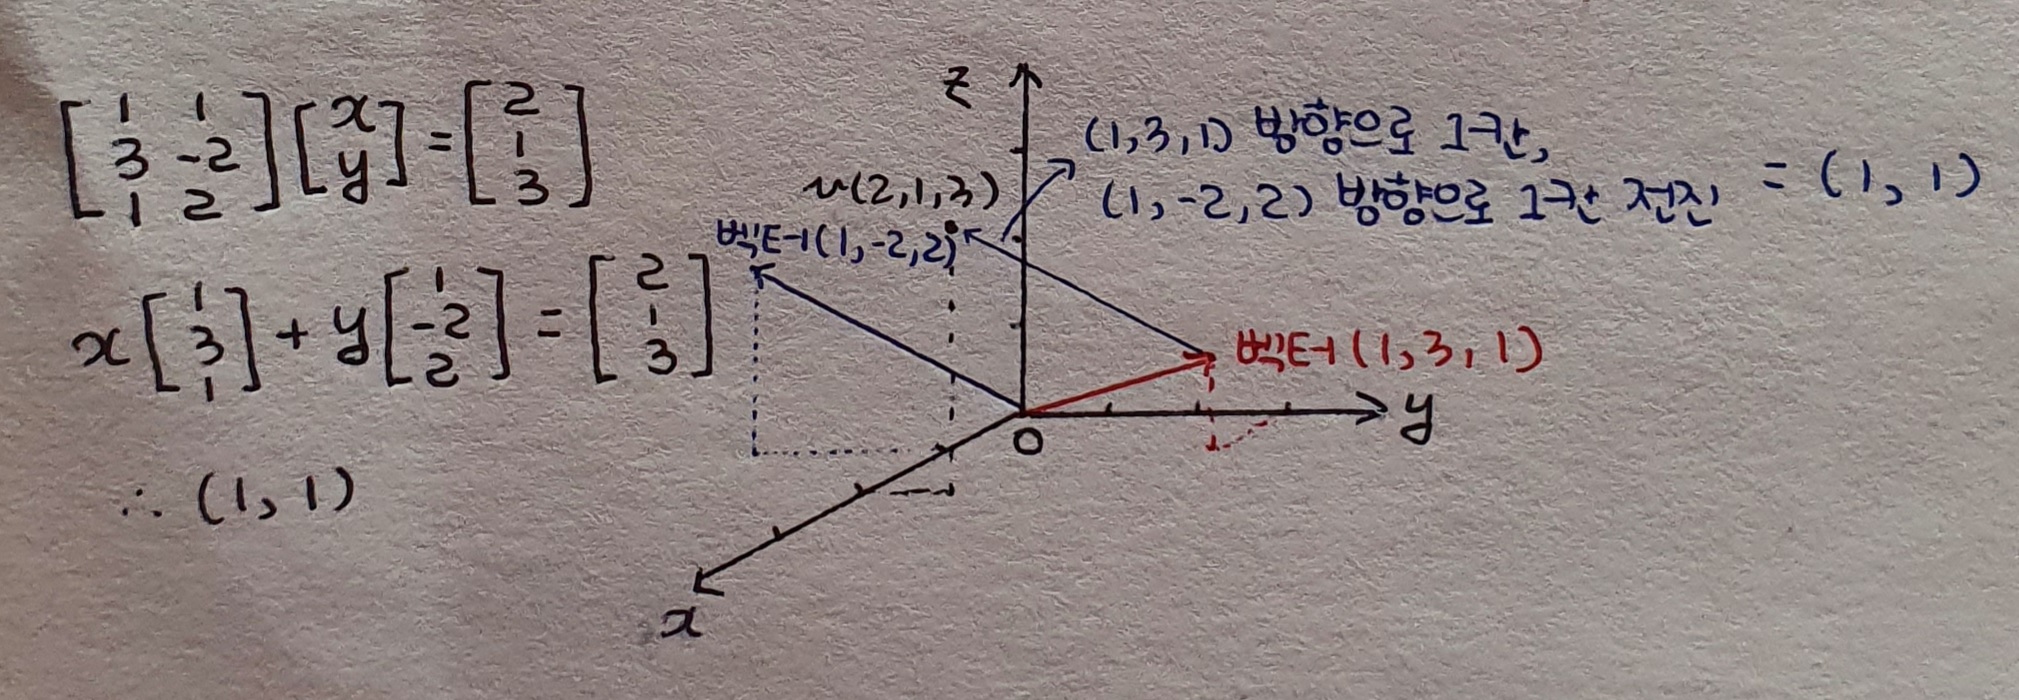 [1 1; 3 -2; 1 2] [x; y] = [2; 1; 3]
x [1; 3; 1] + y [1; -2; 2] = [2; 1; 3]
∴ (1, 1)
z
(1,3,1) 방향으로 1칸,
(1,-2,2) 방향으로 1칸 전진 = (1, 1)
v(2,1,3)
벡터(1,-2,2)
벡터(1,3,1)
y
O
x